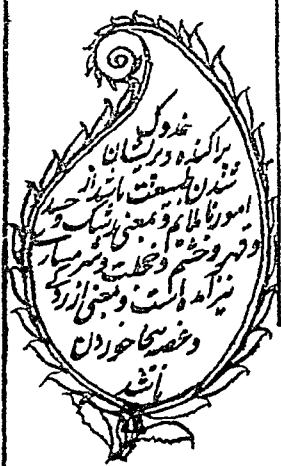 خدوک
پراکنده و پریشان
شدن طبیعت باشد از
امور ناملایم و بمعنی رشک و حسد
و قهر و خشم و خجلت و شرمساری
نیز آمده است و بمعنی آزردگی
و غصه بیجا خوردن
باشد